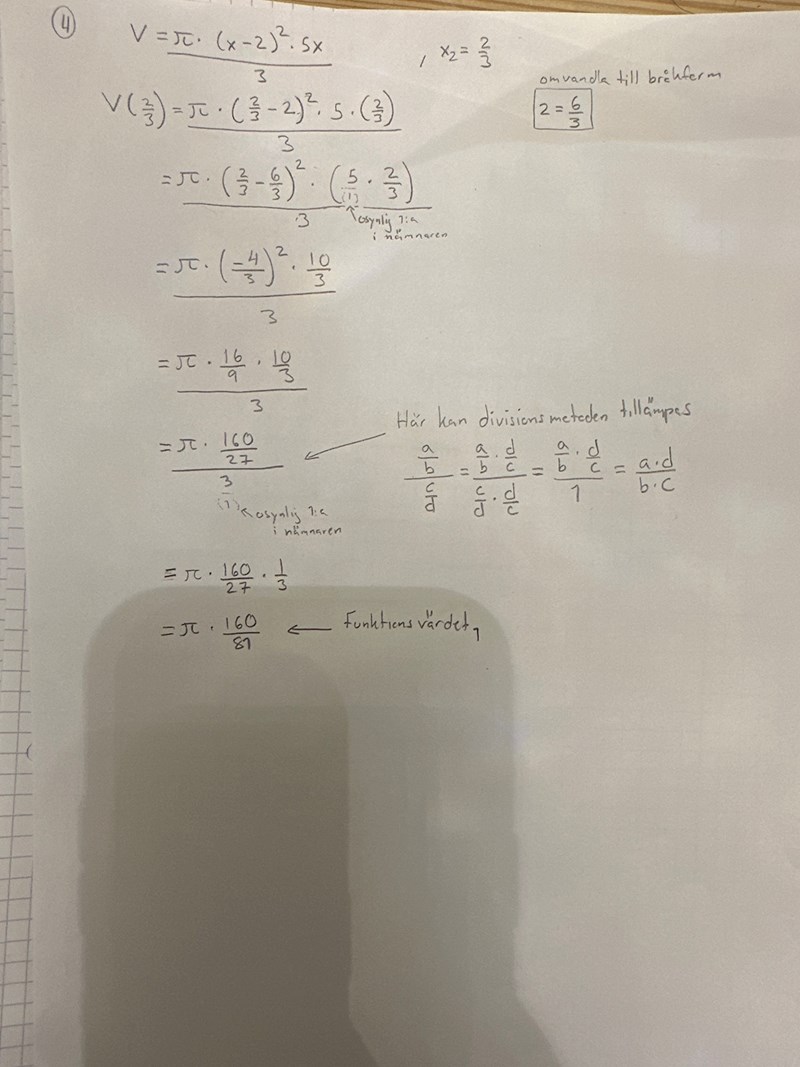 4
V = π · (x-2)² · 5x / 3 , x₂ = 2/3
omvandla till bråkform
2 = 6/3
V(2/3) = π · (2/3 - 2)² · 5 · (2/3) / 3
= π · (2/3 - 6/3)² · (5/(1) · 2/3) / 3
osynlig 1:a
i nämnaren
= π · (-4/3)² · 10/3 / 3
= π · 16/9 · 10/3 / 3
Här kan divisionsmetoden tillämpas
= π · 160/27 / 3/(1)
a/b / c/d = a/b · d/c / c/d · d/c = a/b · d/c / 1 = a·d / b·c
osynlig 1:a
i nämnaren
= π · 160/27 · 1/3
= π · 160/81 ← Funktionsvärdet